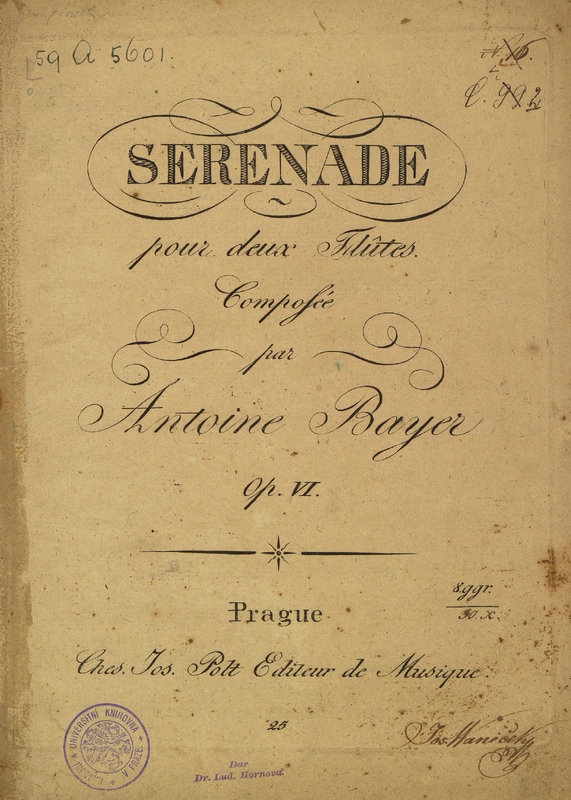 59 A 5601.
SERENADE
pour deux Flûtes.
Composée
par
Antoine Bayer
Op. VI.
8.ggr.
30.x.
Prague
Ches. Jos. Polt Editeur de Musique.
25
UNIVERSITNÍ KNIHOVNA
V PRAZE
Dar
Dr. Lud. Hornová